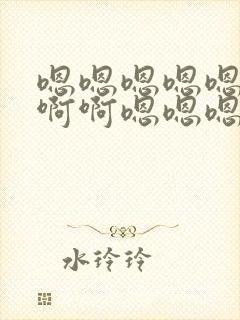 嗯嗯嗯嗯嗯
啊啊嗯嗯嗯
水玲玲